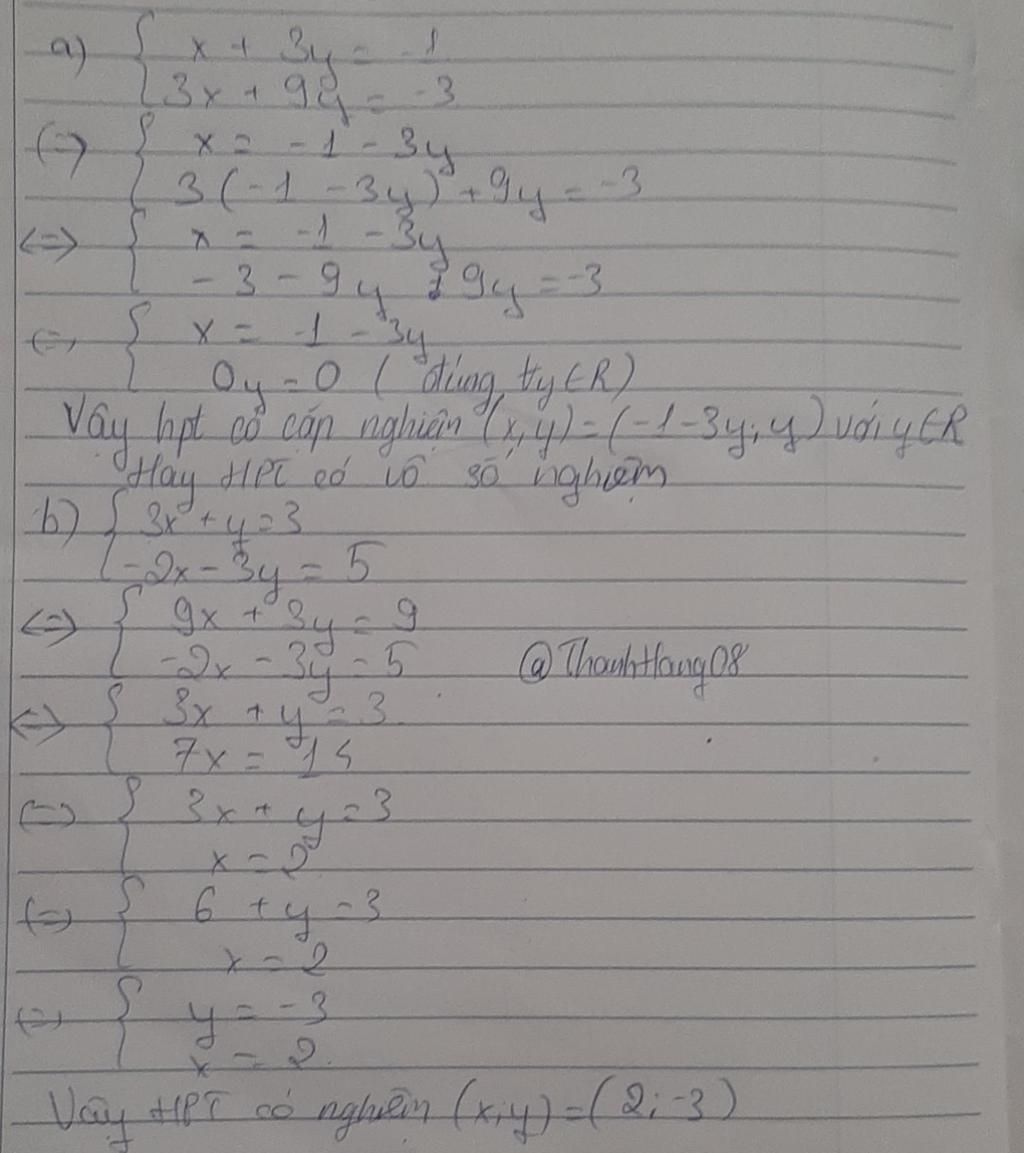 a) { x + 3y = -1
3x + 9y = -3
(=) { x = -1 - 3y
3(-1 - 3y) + 9y = -3
<=> { x = -1 - 3y
-3 - 9y + 9y = -3
(=) { x = -1 - 3y
0y = 0 ( đúng ∀y ∈ R)
Vậy hpt có cặp nghiệm (x,y) = (-1-3y; y) với y ∈ R
Hay HPT có vô số nghiệm
b) { 3x + y = 3
-2x - 3y = 5
<=> { 9x + 3y = 9
-2x - 3y = 5
@ThanhHang08
<=> { 3x + y = 3
7x = 14
(=) { 3x + y = 3
x = 2
(=) { 6 + y = 3
x = 2
(=) { y = -3
x = 2.
Vậy HPT có nghiệm (x;y) = (2;-3)